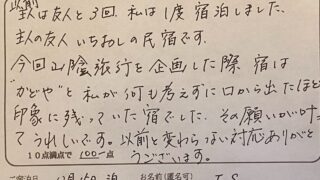 以前
主人は友人と3回、私は1度 宿泊しました。
主人の友人 いちおしの民宿です。
今回山陰旅行を企画した際 宿は
"かどや"と 私が何も考えずに口から出たほど
印象に残っていた宿でした。その願いが叶って
うれしいです。以前と変わらない対応ありがと
うございます。
10点満点で 100 点
12月15日 泊 お名前(匿名可)